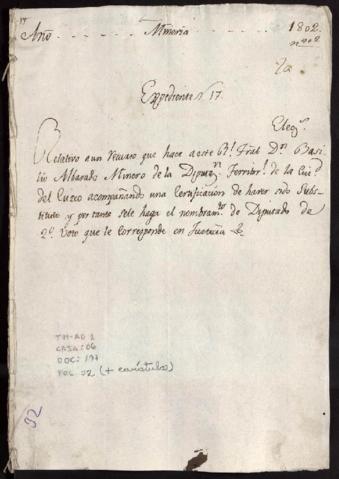 17
Año Mineria 1802.
nº 02
Expediente Nº 17.
Relativo a un recurso que hace a este Rl. Tral. Dn. Basi
lio Albarado Minero de la Diputn. Territl. de la Ciud.
del Cuzco acompañando una Certificacion de haver sido Subs
tituto y por tanto se le haga el nombramto. de Diputado de
2º. Voto que le corresponde en Justicia
TM-AD 2
CAJA: 06
DOC: 171
FOL: 32 (+ carátula)
32